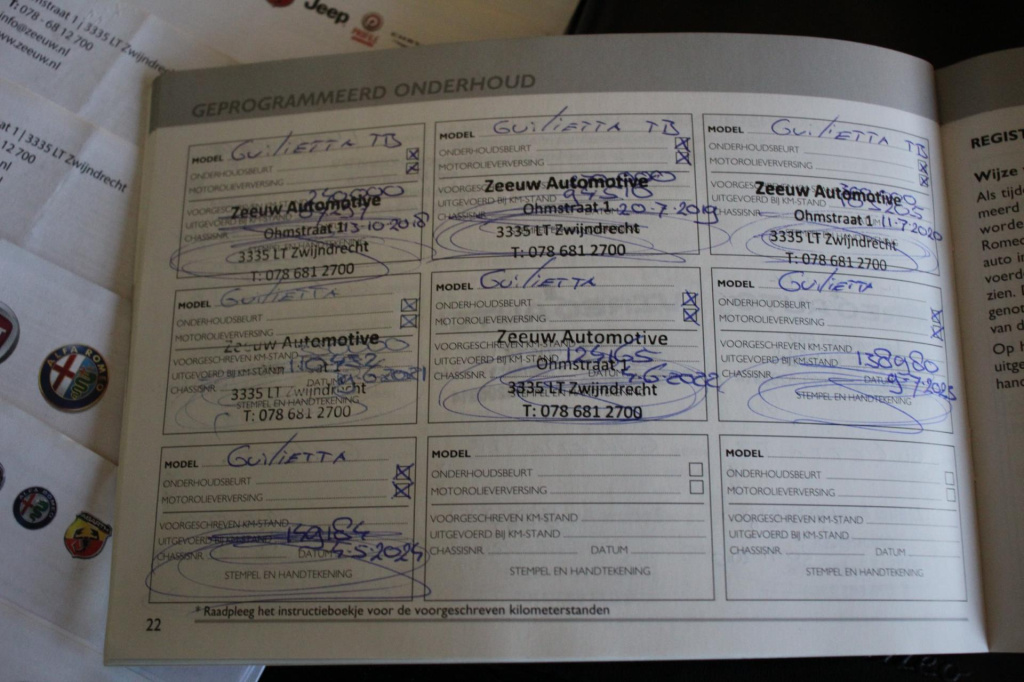 nstraat 1 | 3335 LT Zwijndrecht
T: 078 - 68 12 700
info@zeeuw.nl
www.zeeuw.nl
Jeep
at 1 | 3335 LT Zwijndrecht
12 700
nl
ALFA ROMEO
GEPROGRAMMEERD ONDERHOUD
MODEL Guilietta TB
ONDERHOUDSBEURT
MOTOROLIEVERVERSING
Zeeuw Automotive
Ohmstraat 1 13-10-2018
CHASSISNR.
3335 LT Zwijndrecht
T: 078 681 2700
MODEL Guilietta TB
ONDERHOUDSBEURT
MOTOROLIEVERVERSING
Zeeuw Automotive
Ohmstraat 1 20-7-2019
CHASSISNR.
3335 LT Zwijndrecht
T: 078 681 2700
MODEL Guilietta TB
ONDERHOUDSBEURT
MOTOROLIEVERVERSING
Zeeuw Automotive
Ohmstraat 1 11-7-2020
CHASSISNR.
3335 LT Zwijndrecht
T: 078 681 2700
MODEL Guilietta
ONDERHOUDSBEURT
MOTOROLIEVERVERSING
Zeeuw Automotive
VOORGESCHREVEN KM-STAND
UITGEVOERD BIJ KM-STAND
CHASSISNR. DATUM
3335 LT Zwijndrecht
STEMPEL EN HANDTEKENING
T: 078 681 2700
MODEL Guilietta
ONDERHOUDSBEURT
MOTOROLIEVERVERSING
Zeeuw Automotive
VOORGESCHREVEN KM-STAND
UITGEVOERD BIJ KM-STAND
Ohmstraat 1
CHASSISNR.
3335 LT Zwijndrecht
T: 078 681 2700
MODEL Guilietta
ONDERHOUDSBEURT
MOTOROLIEVERVERSING
VOORGESCHREVEN KM-STAND
UITGEVOERD BIJ KM-STAND 138980
CHASSISNR. DATUM
STEMPEL EN HANDTEKENING
MODEL Guilietta
ONDERHOUDSBEURT
MOTOROLIEVERVERSING
VOORGESCHREVEN KM-STAND
UITGEVOERD BIJ KM-STAND 149184
CHASSISNR. DATUM 4-5-2024
STEMPEL EN HANDTEKENING
MODEL
ONDERHOUDSBEURT
MOTOROLIEVERVERSING
VOORGESCHREVEN KM-STAND
UITGEVOERD BIJ KM-STAND
CHASSISNR. DATUM
STEMPEL EN HANDTEKENING
MODEL
ONDERHOUDSBEURT
MOTOROLIEVERVERSING
VOORGESCHREVEN KM-STAND
UITGEVOERD BIJ KM-STAND
CHASSISNR. DATUM
STEMPEL EN HANDTEKENING
* Raadpleeg het instructieboekje voor de voorgeschreven kilometerstanden
22
REGIST
Wijze
Als tijd
meerd
worde
Romeo
auto in
voerd
zien.
genot
van d
Op h
uitge
hand